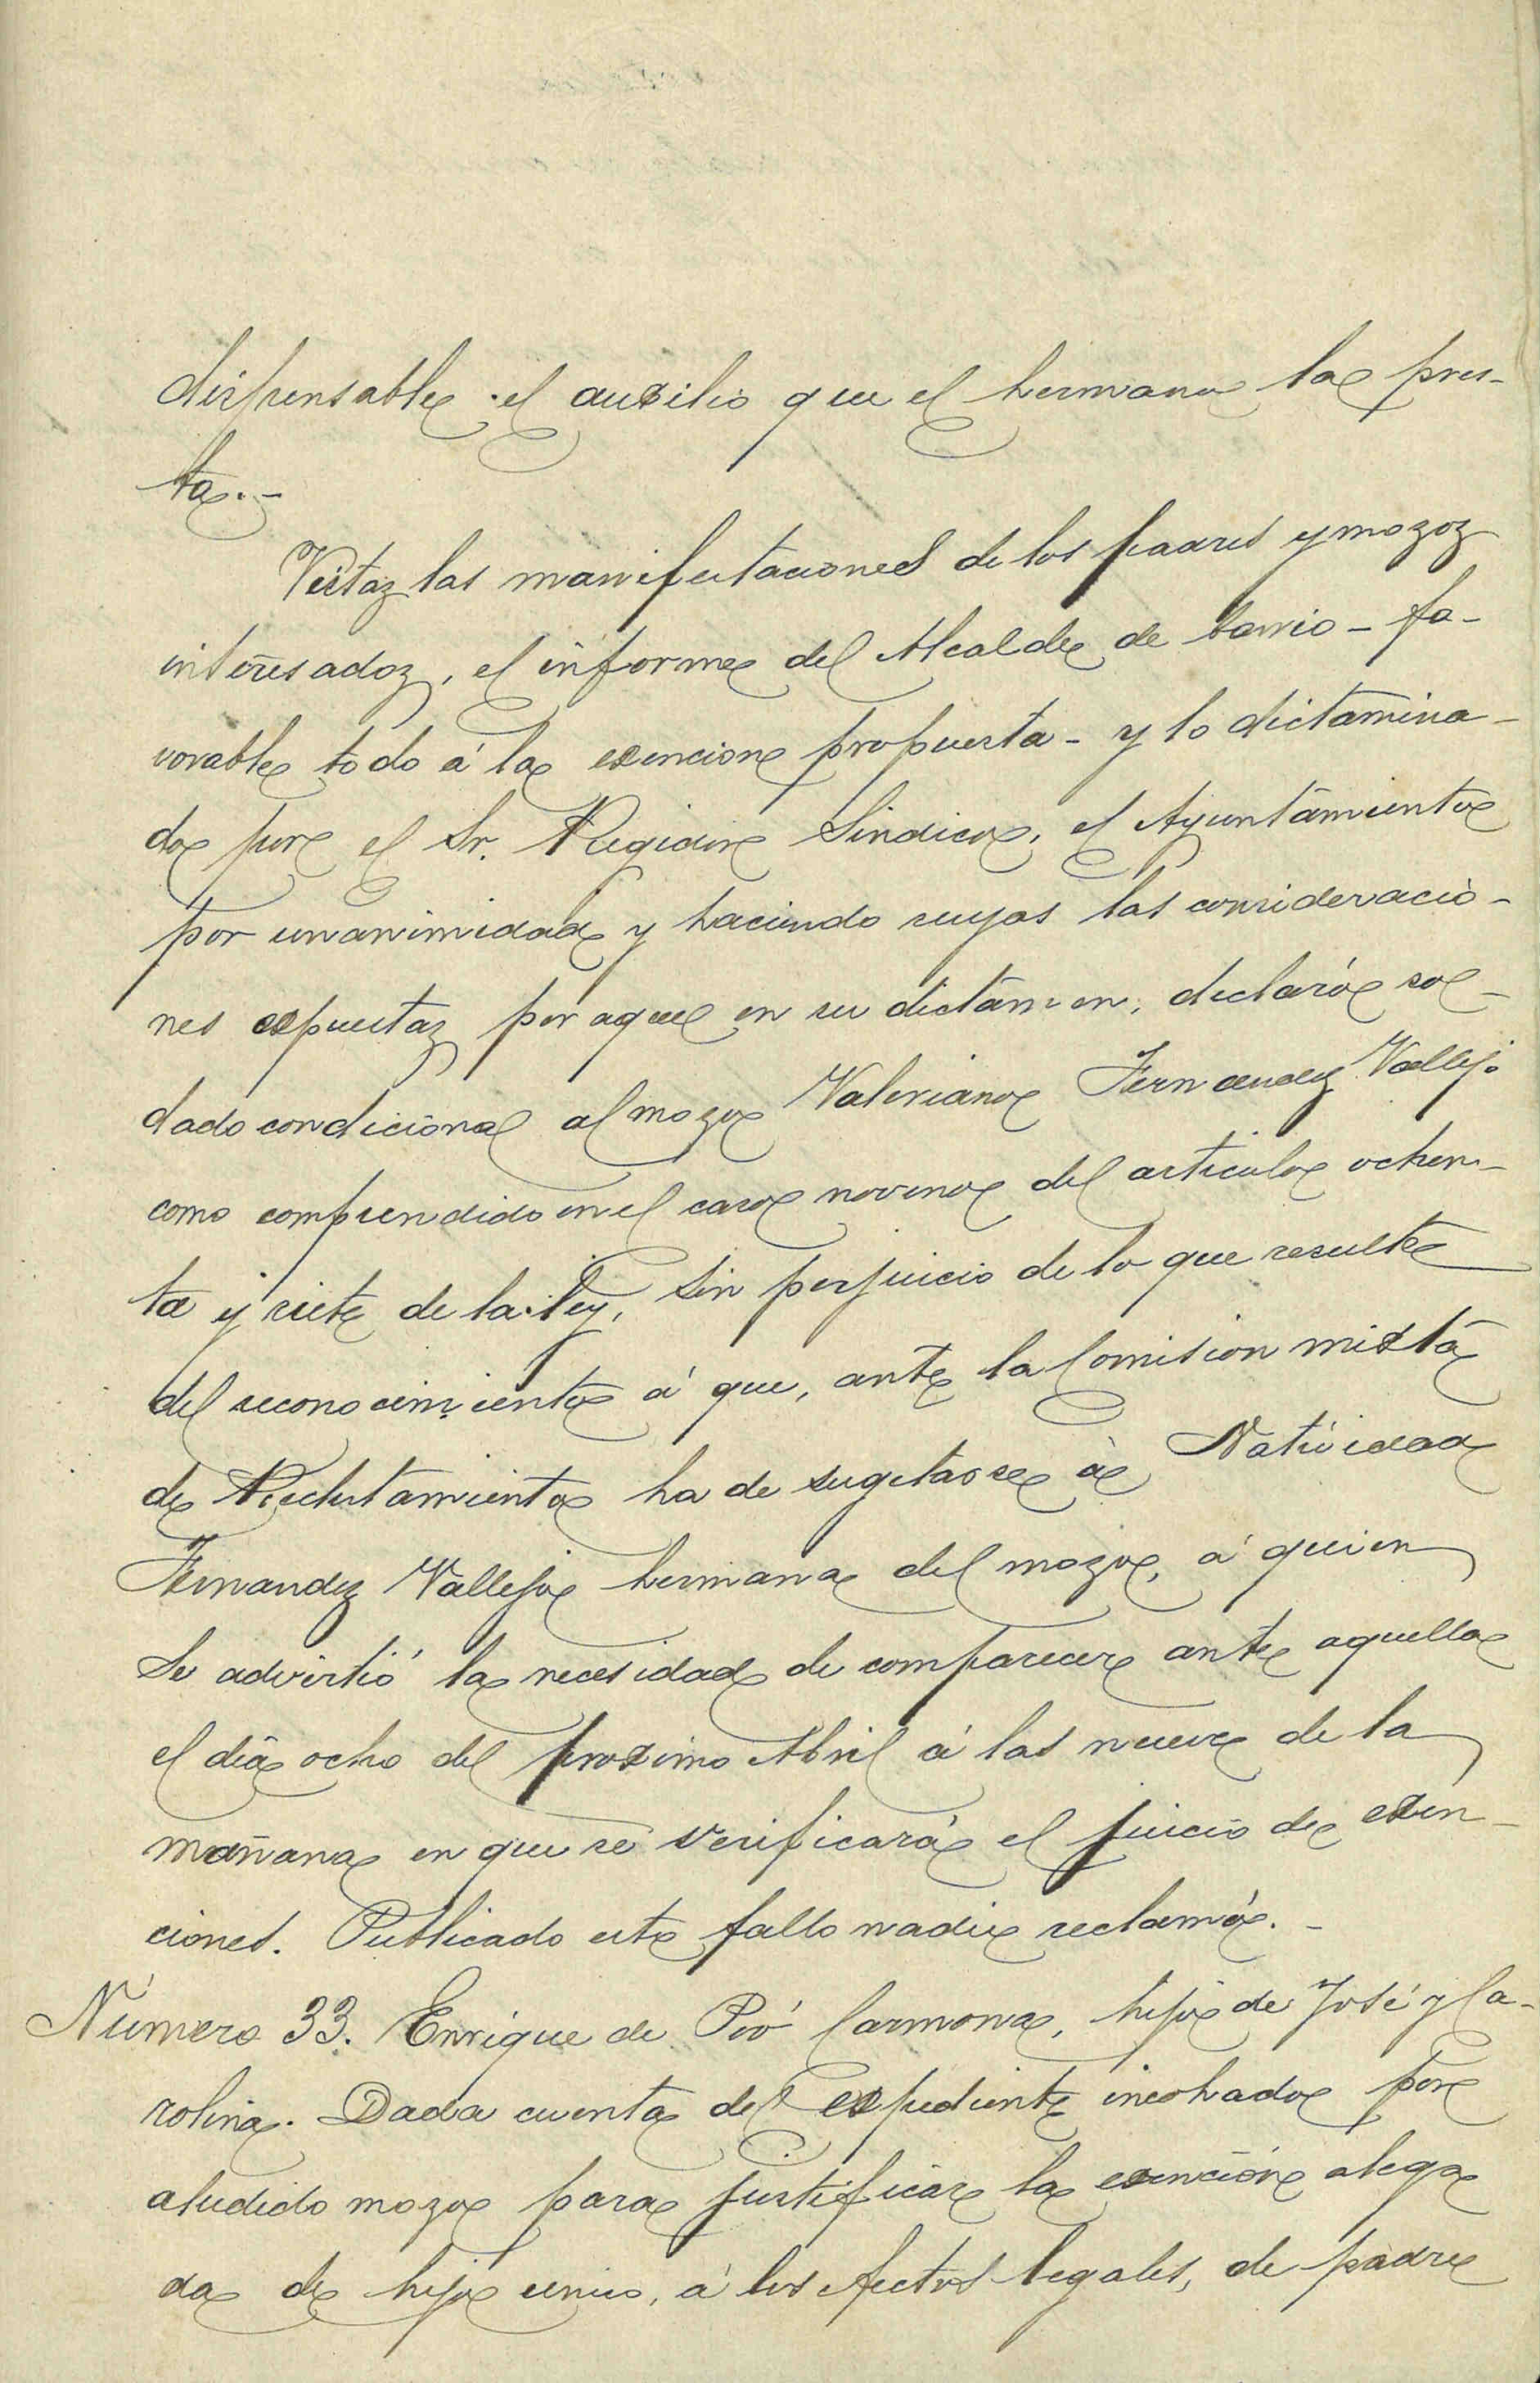 dispensable el auxilio que el hermano la pres-
ta.-
Vistas las manifestaciones de los padres y mozos
interesados, el informe del Alcalde de barrio - fa-
vorable todo á la exencion propuesta - y lo dictamina-
do por el Sr. Regidor Sindico, el Ayuntamiento
por unanimidad y haciendo suyas las consideracio-
nes expuestas por aquel en su dictamen, declaró sol-
dado condicional al mozo Valeriano Fernandez Vallejo
como comprendido en el caso noveno del articulo ochen-
ta y siete de la ley, sin perjuicio de lo que resulte
del reconocimiento á que, ante la Comision mixta
de Reclutamiento ha de sugetarse á Natividad
Fernandez Vallejo hermana del mozo, á quien
se advirtió la necesidad de comparecer ante aquella
el dia ocho del proximo Abril á las nueve de la
mañana en que se verificará el juicio de exen-
ciones. Publicado este fallo nadie reclamó.-
Número 33. Enrique de Pró Carmona, hijo de José y Ca-
rolina. Dada cuenta del expediente incohado por
aludido mozo para justificar la exención alega
da de hijo unico, á los efectos legales, de padre